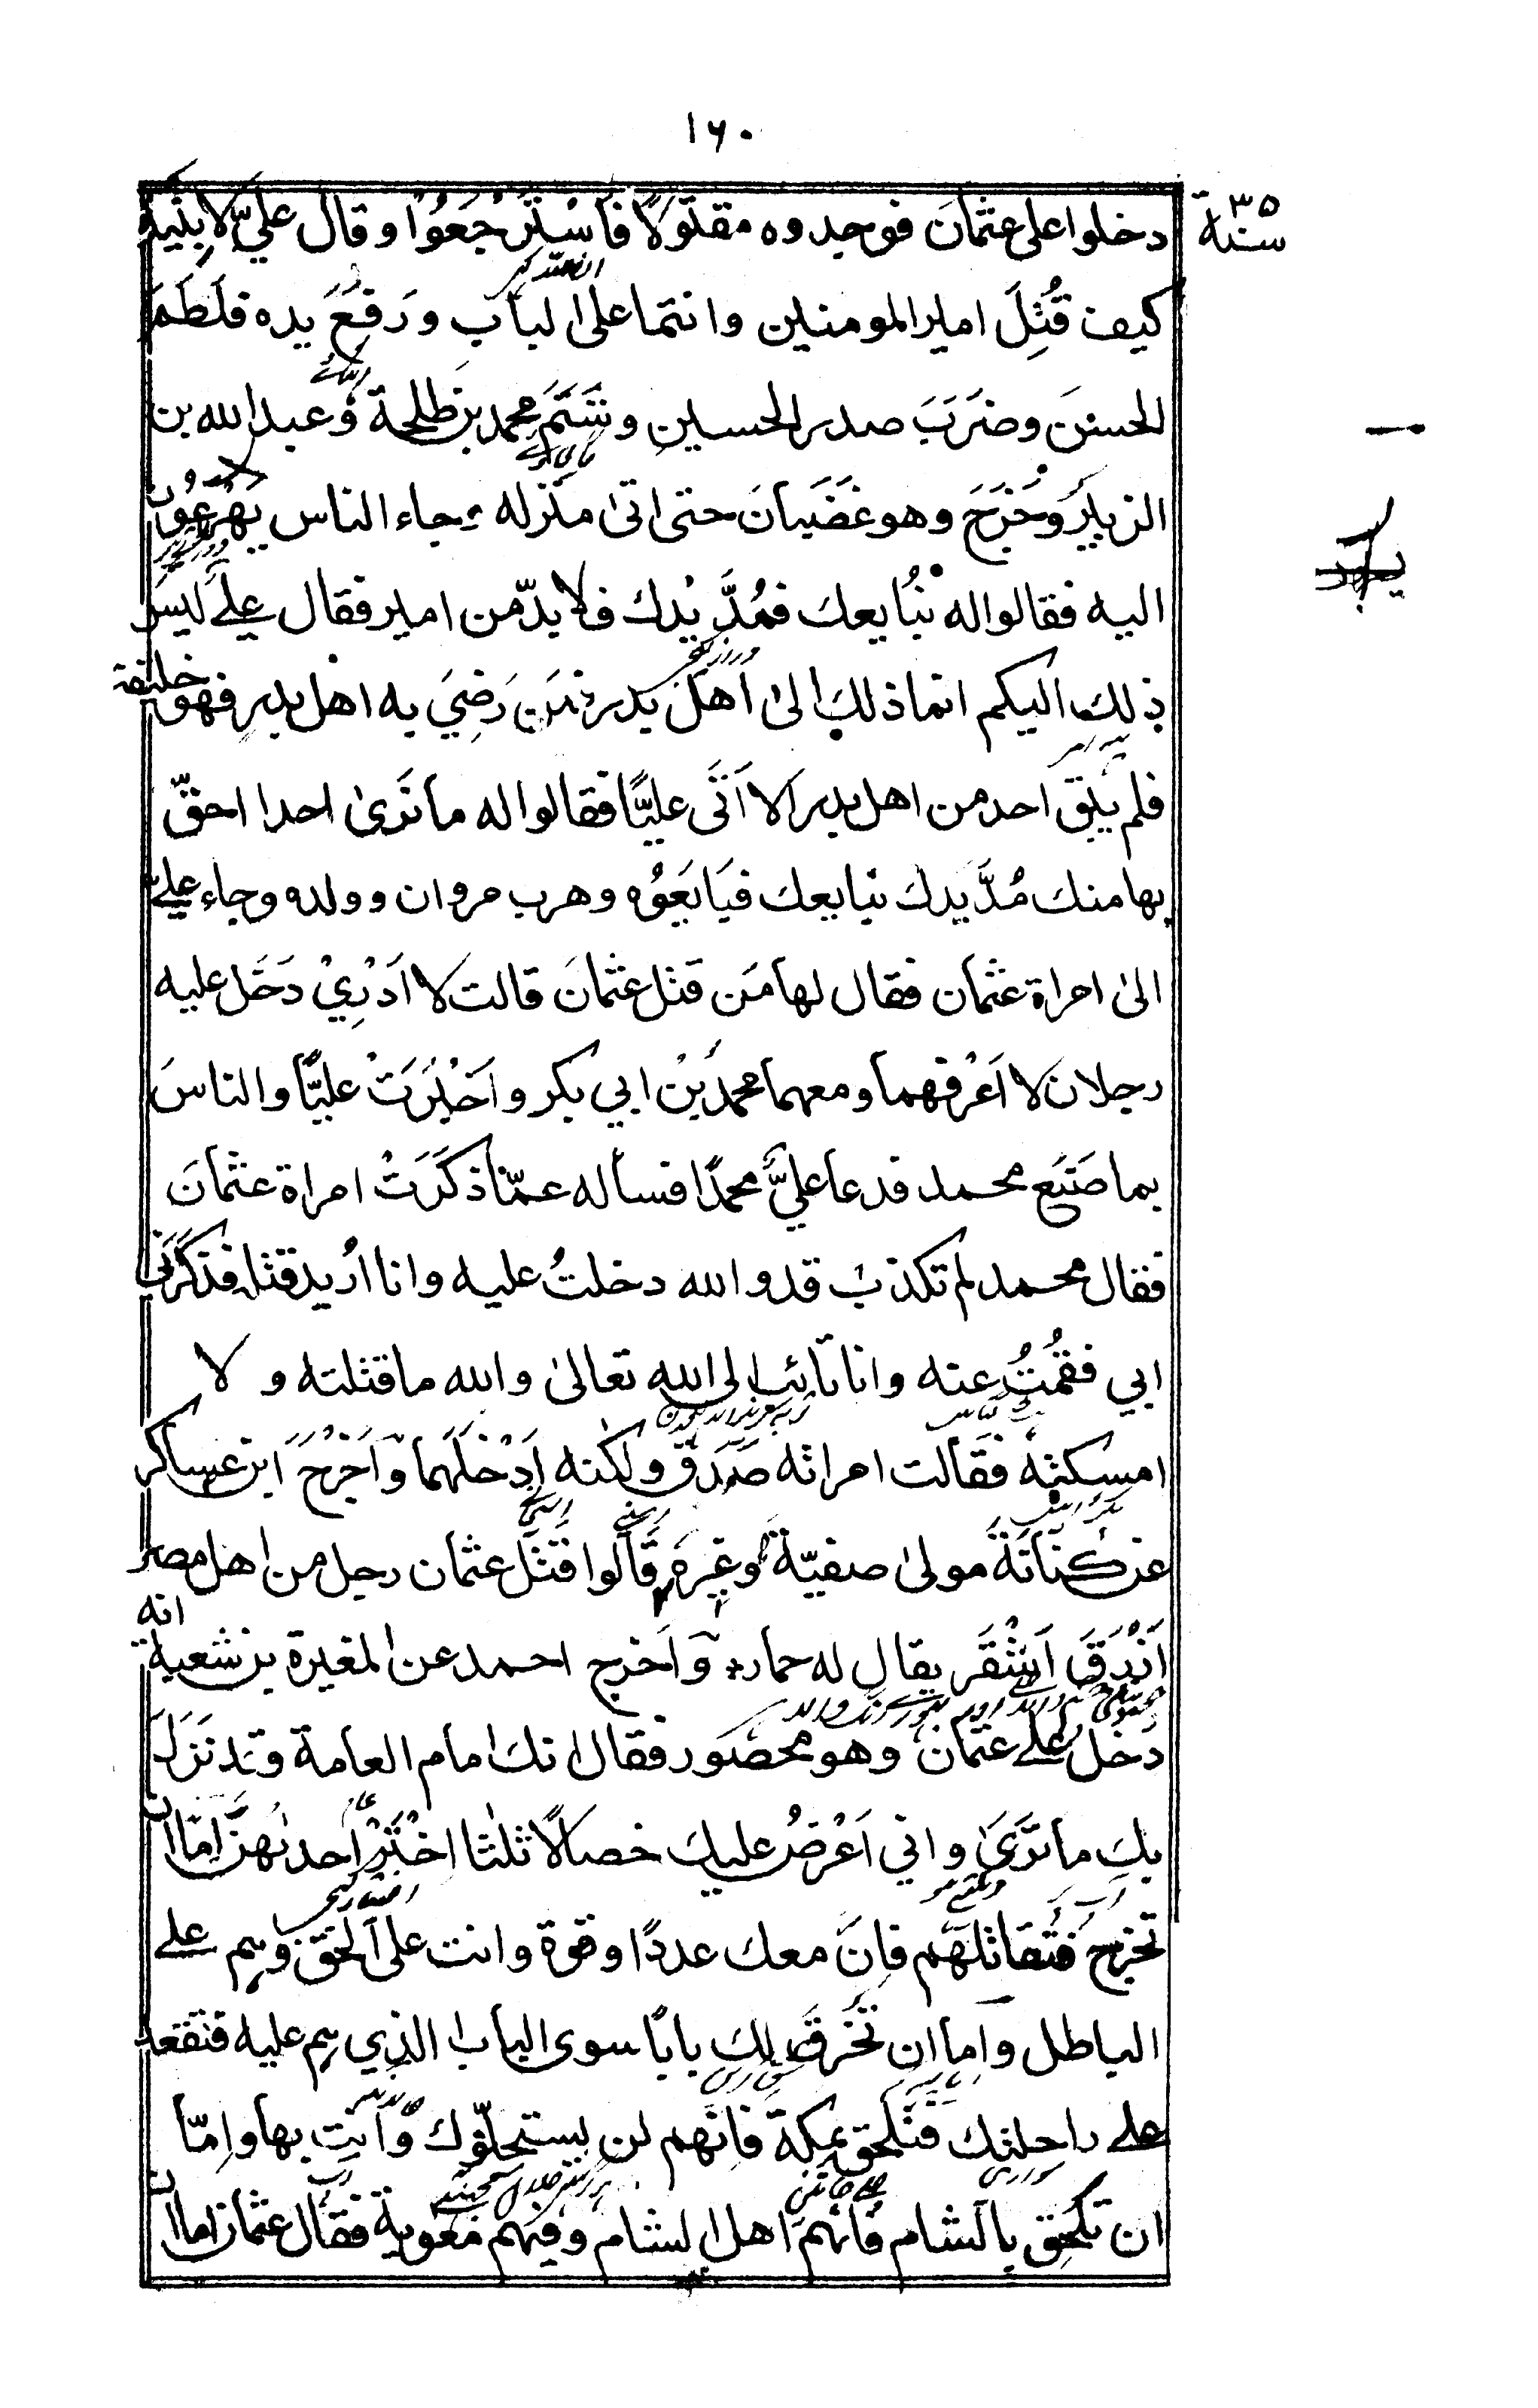 ١٦٠
سنة ٣٥
دخلوا على عثمانَ فوجدوه مقتولًا فاسْتَرْجَعُوْا وقال عليّ لابنَيْهِ
كيف قُتِلَ امير المومنين وانتما على الباب ورَفَعَ يده فلَطَمَ
الحسنَ وضَرَبَ صدر الحسين وشَتَمَ محمد بن طلحة وعبد الله بن
الزبير وخَرَجَ وهو غَضْبَانَ حتى اتى منزله وجاء الناس يُهْرَعُوْنَ
اليه فقالوا له نُبَايعك فمُدَّ يدك فلا بدّ من امير فقال علي ليس
ذلك اليكم انما ذلك الى اهل بدر فمَن رَضِيَ به اهل بدر فهو خليفة
فلم يَبْقَ احد من اهل بدر الا اَتَى عليًّا فقالوا له ما نَرى احدا احقّ
بها منك مُدَّ يدك نبايعك فبَايَعُوْه وهرب مروان وولده وجاء عليّ
الى امراة عثمان فقال لها مَن قتل عثمانَ قالت لا اَدْرِيْ دَخَل عليه
رجلان لا اَعْرفهما ومعهما محمد بْن ابي بكر واَخْبَرَتْ عليًّا والناسَ
بما صَنَع محمد فدعا عليٌّ محمدًا فساله عمّا ذكَرَتْ امراة عثمانَ
فقال محمد لم تكذب قد والله دخلتُ عليه وانا اُريد قتله فذكَّرَني
ابي فقُمْتُ عنه وانا تائب الى الله تعالى والله ما قتلته ولا
امسكته فقالت امراته صَدَقَ ولكنه اَدْخَلَهما واَخْرَجَ ابن عساكر
عن كنَانَة مولى صفيّة وغيره قالوا قَتَلَ عثمان رجل من اهل مصر
اَزْرَقَ اَشْقَر يقال له حمار؞ واَخرج احمد عن المغيرة بن شعبة انه
دخل على عثمان وهو محصور فقال انك امام العامة وقد نَزَلَ
بك ما تَرَى واني اَعْرضُ عليك خصالًا ثلثا اخْتَرْ احدٰهنَّ اِمّا ان
تخرج فتقاتلهم فاِنّ معك عددًا وقوة وانت على الحق وهم على
الباطل واما ان تَخْرقَ لك بابًا سوى الباب الذي هم عليه فتقعد
على راحلتك فتلحق بمكة فانهم لن يستحلّوك وانت بها واِمّا
ان تلحق بالشام فانهم اهل الشام وفيهم معوية فقال عثمان اما ان